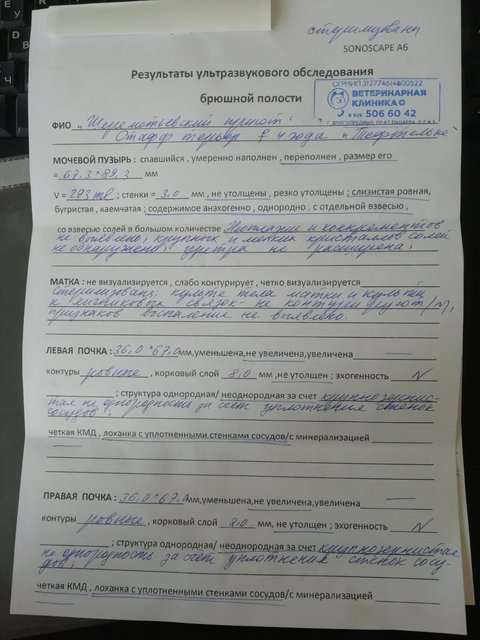 стерилизована
SONOSCAPE A6
Результаты ультразвукового обследования
брюшной полости
ОГРНИП 312774614600522
ВЕТЕРИНАРНАЯ
КЛИНИКА
8 925 506 60 42
Г. ДОЛГОПРУДНЫЙ, ПР-КТ ПАЦАЕВА
ФИО „Шереметьевский приют"
Стафф терьер ♀ 4 года „Тефтелька"
МОЧЕВОЙ ПУЗЫРЬ: спавшийся , умеренно наполнен , переполнен , размер его
= 67,3*89,3 мм
V = 293 ml ; стенки = 3,0 мм , не утолщены , резко утолщены ; слизистая ровная,
бугристая , каемчатая ; содержимое анэхогенно , однородно , с отдельной взвесью ,
со взвесью солей в большом количестве Неоплазии и конкрементов
не выявлено; крупных и мелких кристаллов солей
не обнаружено; уретра не расширена;
МАТКА : не визуализируется , слабо контурирует , четко визуализируется
стерилизована; культя тела матки и культи
и яичниковых связок – не контурируют /N/,
признаков воспаление не выявлено.
ЛЕВАЯ ПОЧКА : 36,0*67,0 мм,уменьшена,не увеличена,увеличена —
контуры ровные , корковый слой 8,0 мм ,не утолщен ; эхогенность N
; структура однородная/ неоднородная за счет крупнозернис-
тая не однородность за счет уплотнения стенок
сосудов;
четкая КМД , лоханка с уплотненными стенками сосудов/с минерализацией
ПРАВАЯ ПОЧКА : 36,0*67,0 мм,уменьшена,не увеличена,увеличена —
контуры ровные , корковый слой 8,0 мм, не утолщен ; эхогенность N
; структура однородная/ неоднородная за счет крупнозернистая
не однородность за счет уплотнения стенок сосу-
дов;
четкая КМД , лоханка с уплотненными стенками сосудов/с минерализацией